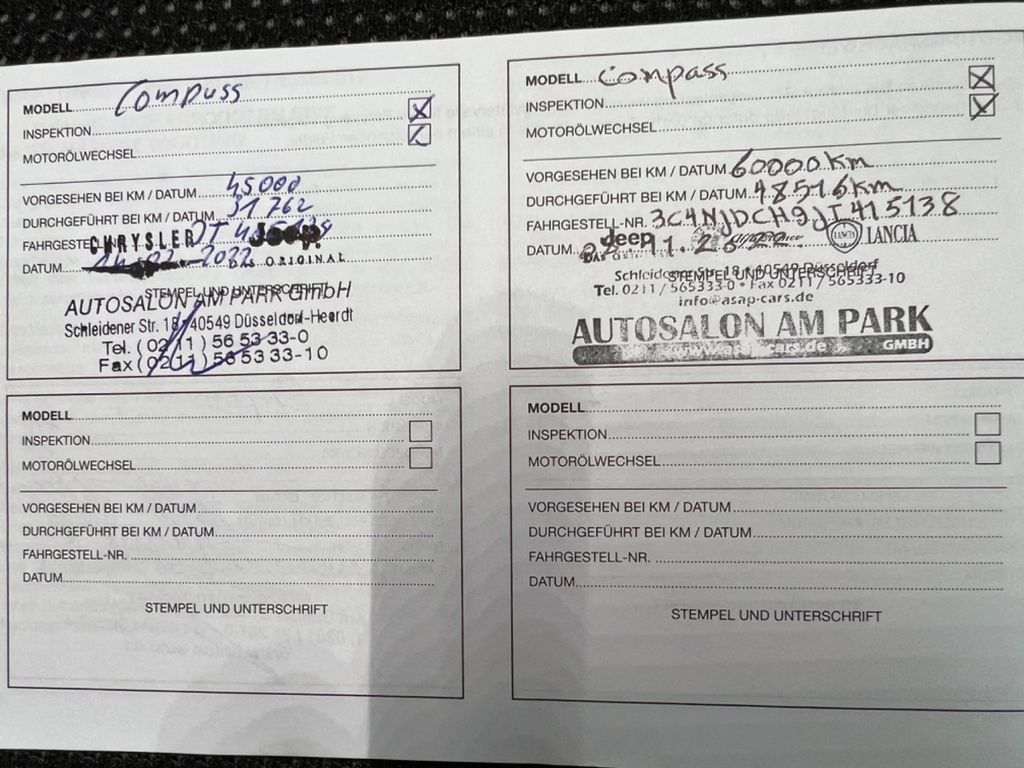 MODELL Compuss
INSPEKTION
MOTORÖLWECHSEL
VORGESEHEN BEI KM / DATUM 45000
DURCHGEFÜHRT BEI KM / DATUM 31762
FAHRGESTE
CHRYSLER Jeep
DAS ORIGINAL
DATUM 2022
STEMPEL UND UNTERSCHRIFT
AUTOSALON AM PARK GmbH
Schleidener Str. 18 40549 Düsseldorf-Heerdt
Tel. (0211) 56 53 33-0
Fax (0211) 56 53 33-10
MODELL Compass
INSPEKTION
MOTORÖLWECHSEL
VORGESEHEN BEI KM / DATUM 60000 km
DURCHGEFÜHRT BEI KM / DATUM 48516km
FAHRGESTELL-NR. 3C4NJDCH9JT415138
DATUM
Jeep LANCIA LANCIA
Schleidener Str. 18 40549 Düsseldorf
STEMPEL UND UNTERSCHRIFT
Tel. 0211 / 565333-0 • Fax 0211 / 565333-10
info@asap-cars.de
AUTOSALON AM PARK
cars.de GMBH
MODELL
INSPEKTION
MOTORÖLWECHSEL
VORGESEHEN BEI KM / DATUM
DURCHGEFÜHRT BEI KM / DATUM
FAHRGESTELL-NR.
DATUM
STEMPEL UND UNTERSCHRIFT
MODELL
INSPEKTION
MOTORÖLWECHSEL
VORGESEHEN BEI KM / DATUM
DURCHGEFÜHRT BEI KM / DATUM
FAHRGESTELL-NR.
DATUM
STEMPEL UND UNTERSCHRIFT